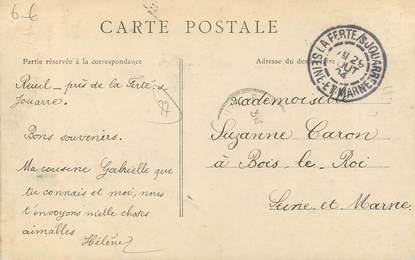 6-€
CARTE POSTALE
Partie réservée à la correspondance
Adresse du destinataire
LA FERTE/S-JOUARRE
SEINE-ET-MARNE
Reuil - près de la Ferté-s
Jouarre.
77
Bons souvenirs.
Ma cousine Gabrielle que
tu connais et moi, nous
t'envoyons mille choses
aimables
Hélène
Mademoiselle
Suzanne Caron
à Bois-le-Roi
Seine-et-Marne.